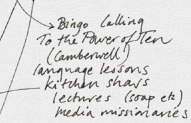 Bingo Calling
To the Power of Ten
(Camberwell)
language lessons
Kitchen shows
lectures (soap etc)
media missionaries